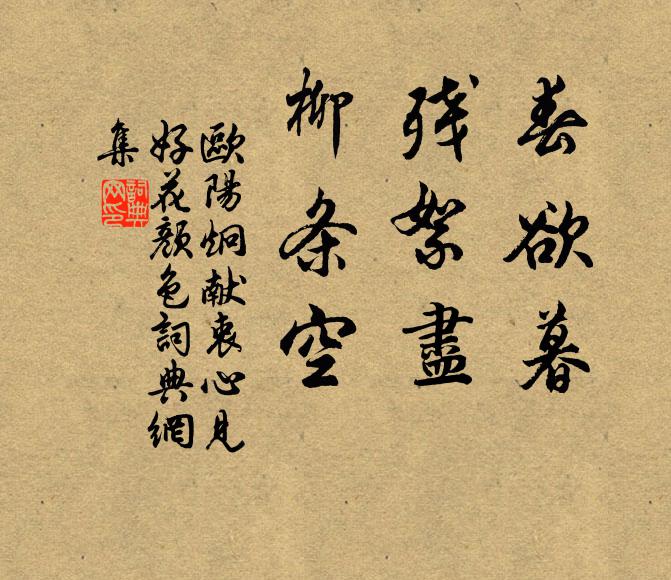 春欲暮
残絮盡
柳条空
歐陽炯献衷心見
好花顏色詞典網
集
詞典
网印